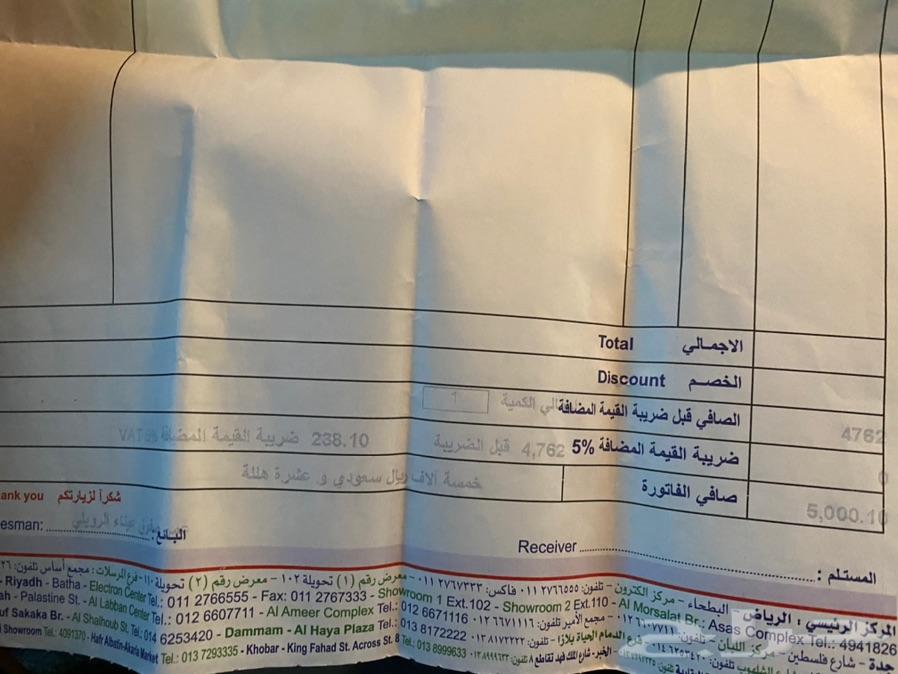 الاجمالي Total
الخصم Discount
الصافي قبل ضريبة القيمة المضافة الي الكمية 1
4762
ضريبة القيمة المضافة 5% 4,762 قبل الضريبة 238.10 ضريبة القيمة المضافة VAT5%
0
صافي الفاتورة خمسة آلاف ريال سعودي و عشرة هللة
5,000.10
شكراً لزيارتكم ank you
البائع: الرويلي esman:
المستلم : Receiver
المركز الرئيسي : الرياض البطحاء - مركز الكترون - تلفون: ٠١١٢٧٦٦٥٥٥ فاكس: ٠١١٢٧٦٧٣٣٣ - معرض رقم (١) تحويلة ١٠٢ - معرض رقم (٢) تحويلة ١١٠ - فرع المرسلات : مجمع أساس تلفون:
- Riyadh - Batha - Electron Center Tel.: 011 2766555 - Fax: 011 2767333 - Showroom 1 Ext.102 - Showroom 2 Ext.110 - Al Morsalat Br.: Asas Complex Tel.: 4941826
جدة - شارع فلسطين - مركز اللبان - تلفون: ٠١٢٦٦٠٧٧١١ - مجمع الأمير تلفون: ٠١٢٦٦٧١١١٦
ah - Palastine St. - Al Labban Center Tel.: 012 6607711 - Al Ameer Complex Tel.: 012 6671116
فرع الدمام الحياة بلازا - تلفون: ٠١٣٨١٧٢٢٢٢ - الخبر - شارع الملك فهد تقاطع ٨ تلفون: ٠١٣٨٩٩٩٦٣٣
uf Sakaka Br. - Al Shalhoub St. Tel.: 014 6253420 - Dammam - Al Haya Plaza Tel.: 013 8172222
Showroom Tel.: 4091370 - Hafr Albatin-Akaria Market Tel.: 013 7293335 - Khobar - King Fahad St. Across St. 8 Tel.: 013 8999633